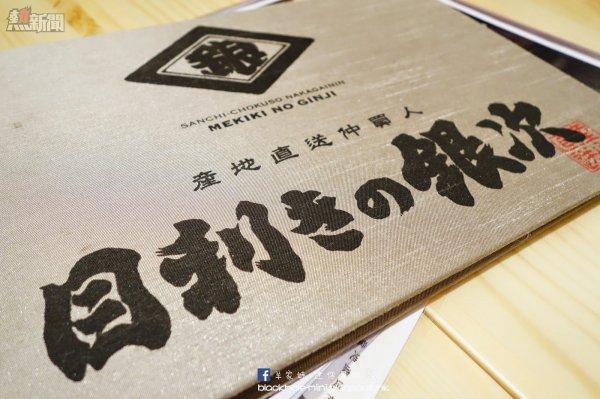 熱新聞
SANCHI-CHOKUSO NAKAGAININ
MEKIKI NO GINJI
産地直送仲買人
目利きの銀次